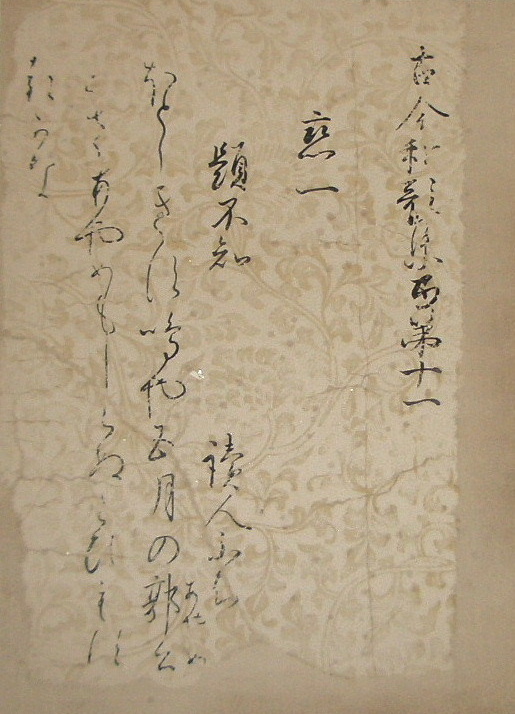 古今和歌集巻第十一
戀一
題不知
讀人不知
ほとゝきす鳴也五月の郭公
あやめ
くさあやめもしらぬこひもす